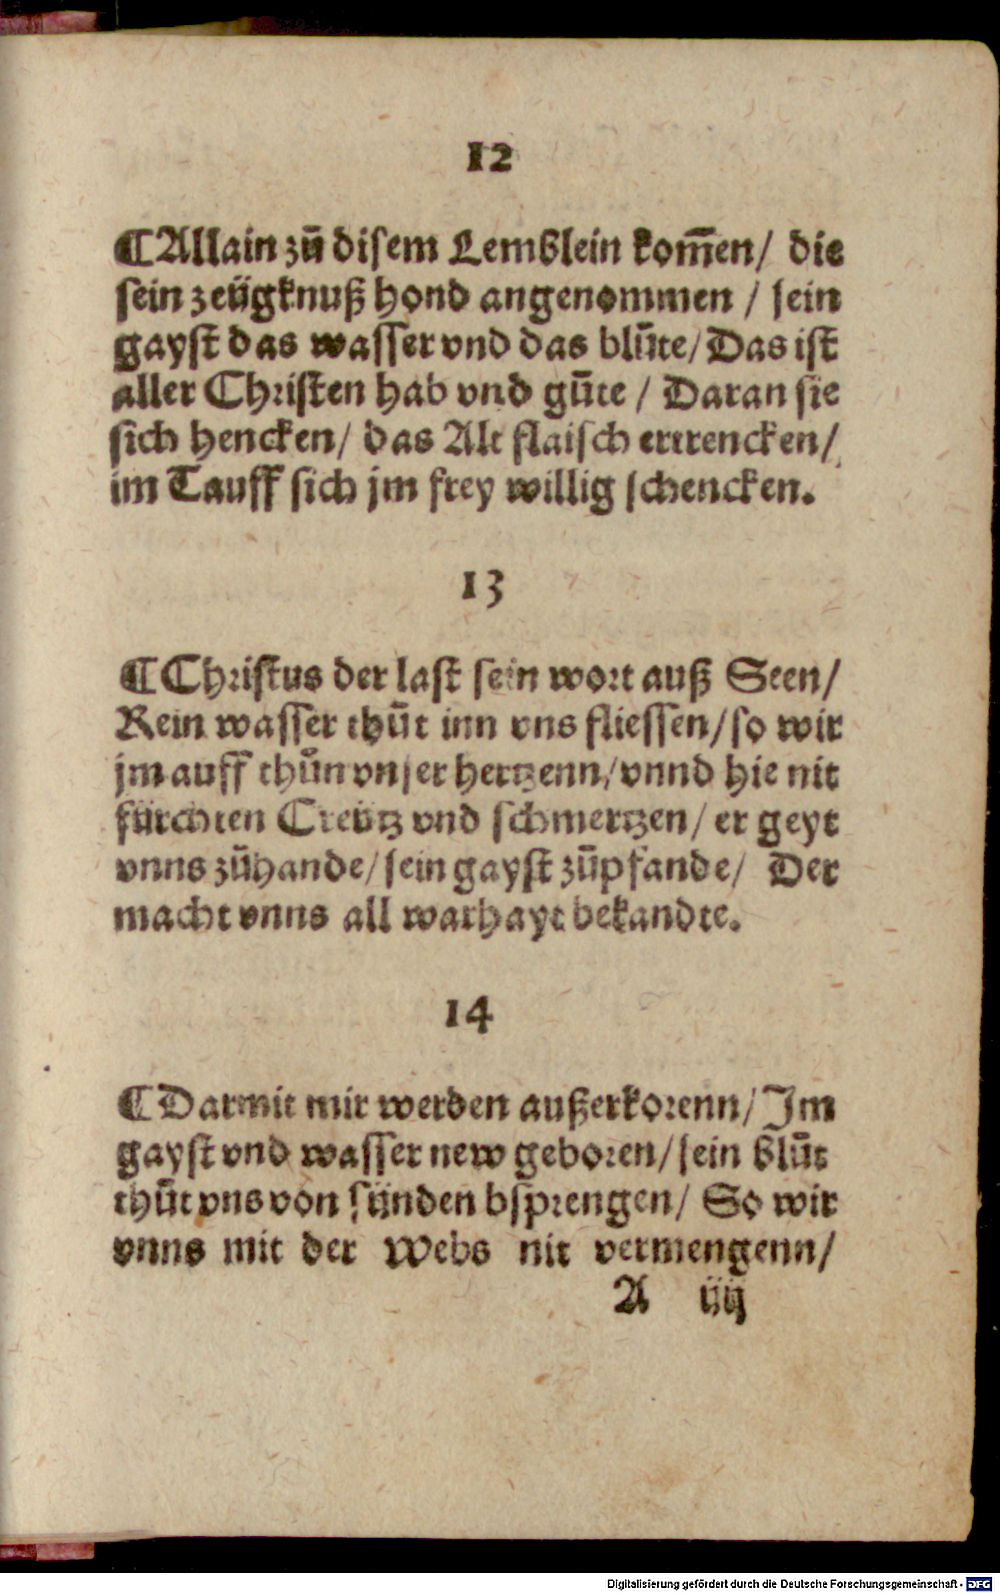 12
¶Allain zů disem Lemblein kom̃en/ die
sein zeügknuß hond angenommen / sein
gayst das wasser vnd das blůte/ Das ist
aller Christen hab vnd gůte / Daran sie
sich hencken/ das Alt flaisch ertrencken/
im Tauff sich jm frey willig schencken.
13
¶Christus der last sein wort auß Seen/
Rein wasser thůt inn vns fliessen/ so wir
jm auff thůn vnser hertzenn/ vnnd hie nit
fürchten Creütz vnd schmertzen/ er geyt
vnns zůhande/ sein gayst zůpfande/ Der
macht vnns all warhayt bekandte.
14
¶Darmit mir werden außerkorenn/ Im
gayst vnd wasser new geboren/ sein blůt
thůt vns von sünden bsprengen/ So wir
vnns mit der Webs nit vermengenn/
A iiij
Digitalisierung gefördert durch die Deutsche Forschungsgemeinschaft - DFG